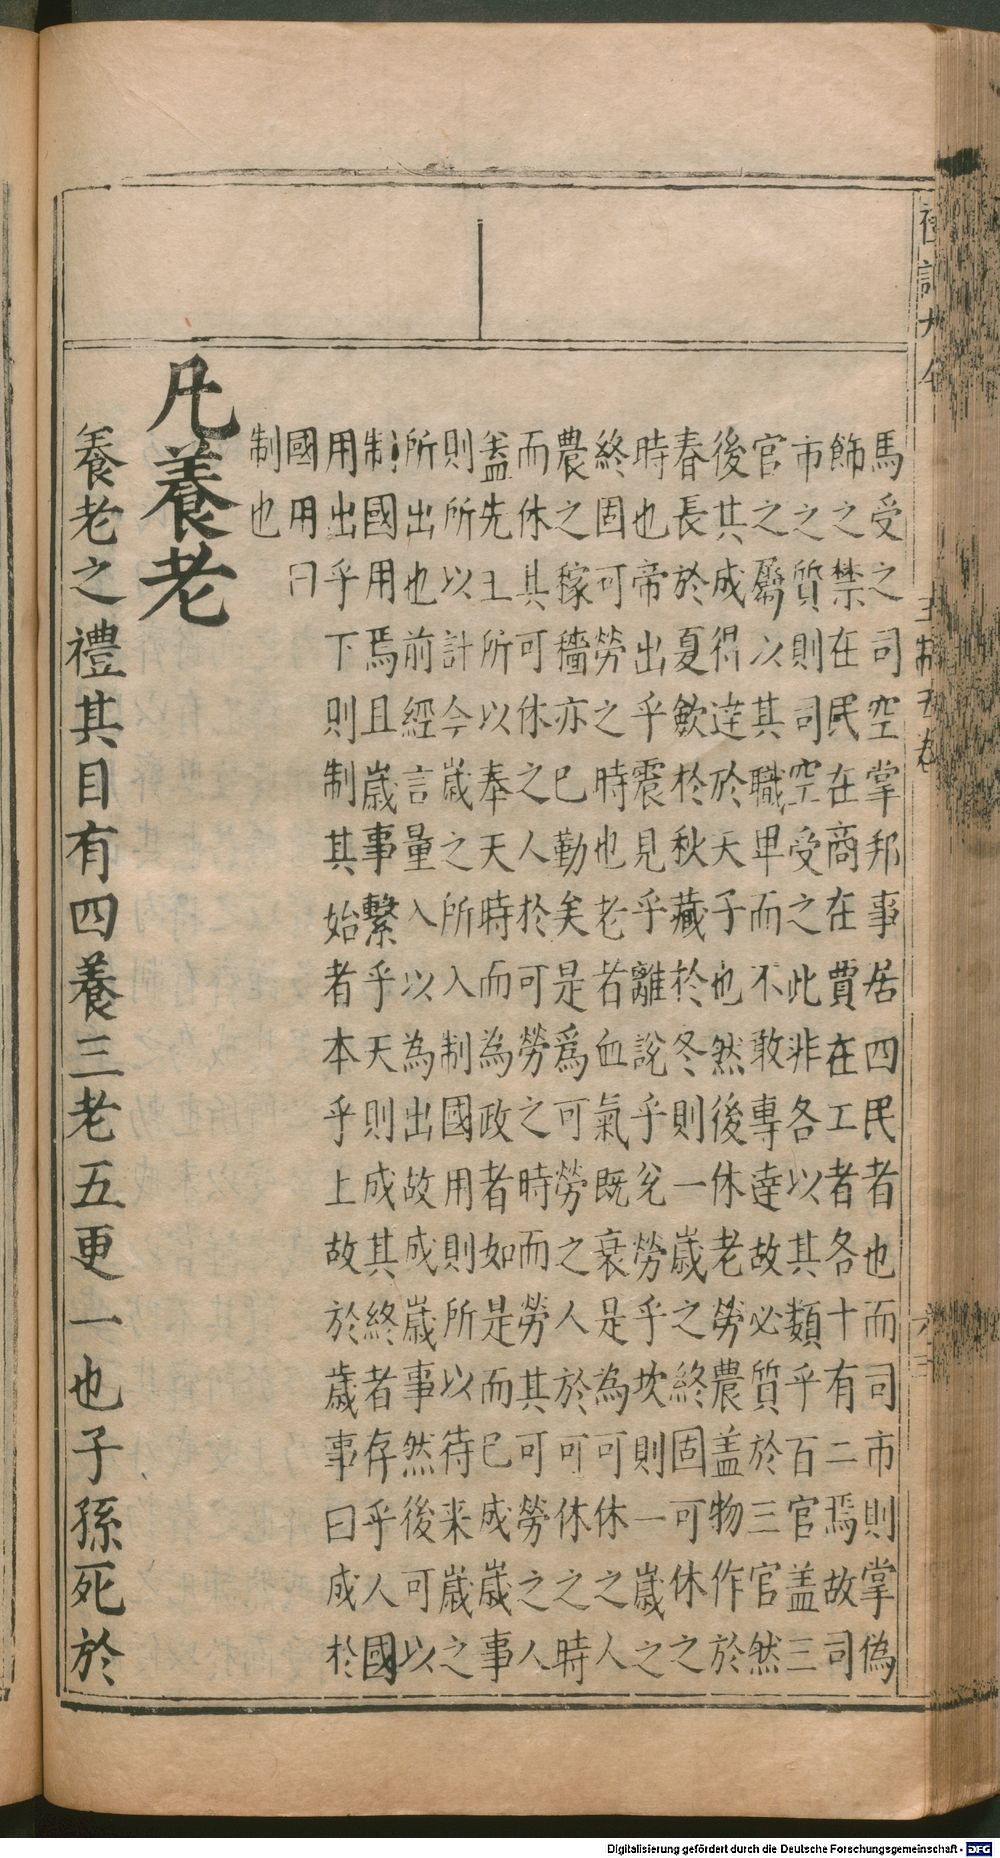 王制五卷
馬受之司空掌邦事居四民者也而司市則掌偽
飾之禁在民在商在賈在工者各十有二焉故司
市之質則司空受之此非各以其類乎百官盖三
官之屬以其職卑而不敢專達故必質於三官然
後其成得達於天子也然後休老勞農盖物作於
春長於夏斂於秋藏於冬則一歲之終固可休之
時也帝出乎震見乎離說乎兌勞乎坎則一歲之
終固可勞之時也老者血氣既衰是為可休之人
農之稼穡亦已勤矣是爲可勞之人於可休之時
而休其可休之人於可勞之時而勞其可勞之人
盖先王所以奉天時而為政者如是而已成歲事
則所以計今歲之所入制國用則所以待来歲之
所出也前經言量入以為出故成歲事然後可以
制國用焉且歲事繫乎天則成其終者存乎人國
用出乎下則制其始者本乎上故於歲事曰成於
國用曰
制也
凡養老
養老之禮其目有四養三老五更一也子孫死於
Digitalisierung gefördert durch die Deutsche Forschungsgemeinschaft - DFG